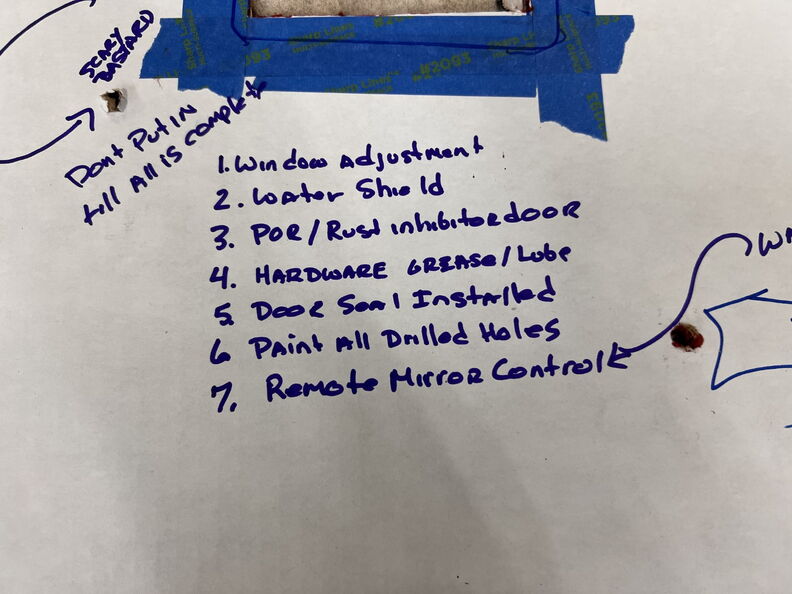 #2093
SCARY
BASTARD
Dont Put IN
till All is complete
1. Window Adjustment
2. Water Shield
3. POR/Rust inhibitor door
4. HARDWARE GREASE/Lube
5. Door Seal Installed
6 Paint All Drilled Holes
7. Remote Mirror Control